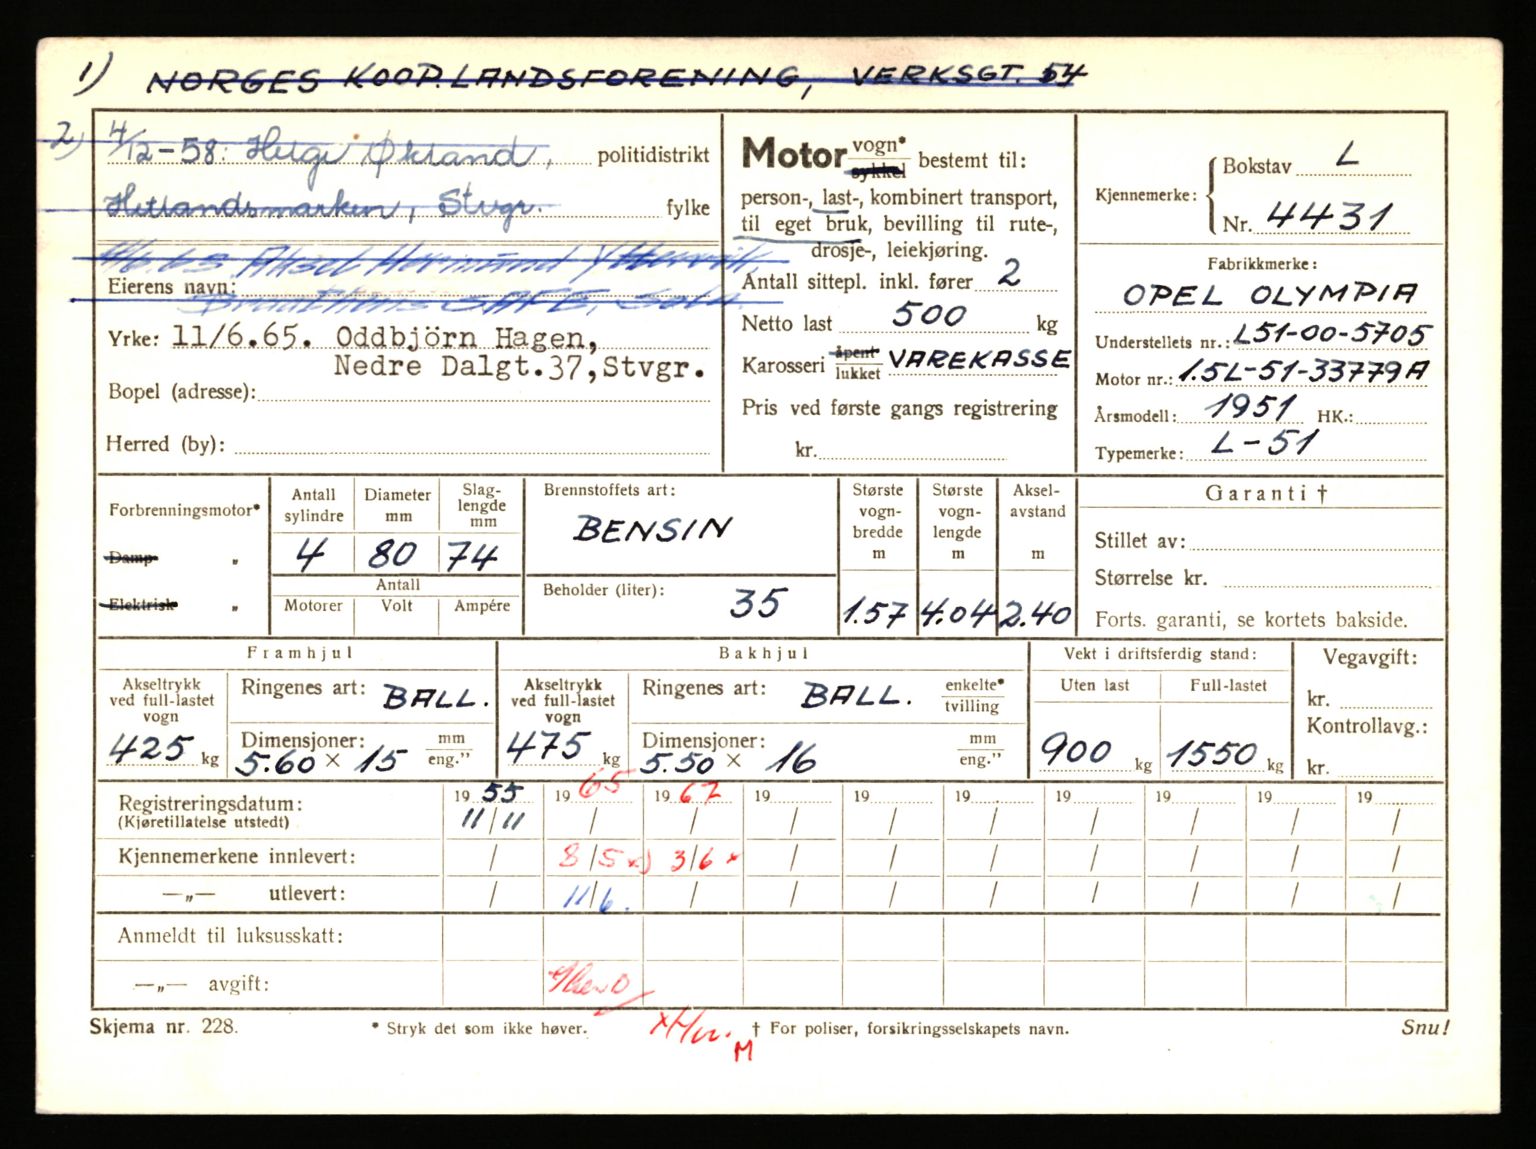 1) NORGES KOOP. LANDSFORENING, VERKSGT. 54
2) 4/12-58. Helge Økland, politidistrikt
Hetlandsmarken, Stvgr. fylke
Aksel Hermund
Eierens navn: CAFE, Sola
Yrke: 11/6.65. Oddbjörn Hagen,
Nedre Dalgt.37, Stvgr.
Bopel (adresse):
Herred (by):
Motor vogn* sykkel bestemt til:
person-, last-, kombinert transport,
til eget bruk, bevilling til rute-,
drosje-, leiekjøring.
Antall sittepl. inkl. fører 2
Netto last 500 kg
Karosseri åpent lukket VAREKASSE
Pris ved første gangs registrering
kr.
Kjennemerke: Bokstav L
Nr. 4431
Fabrikkmerke:
OPEL OLYMPIA
Understellets nr.: L51-00-5705
Motor nr.: 1.5L-51-33779A
Årsmodell: 1951 HK.:
Typemerke: L-51
Forbrenningsmotor*
Damp "
Elektrisk "
Antall sylindre 4
Diameter mm 80
Slaglengde mm 74
Antall
Motorer Volt Ampére
Brennstoffets art:
BENSIN
Beholder (liter): 35
Største vogn-bredde m 1.57
Største vogn-lengde m 4.04
Aksel-avstand m 2.40
Garanti †
Stillet av:
Størrelse kr.
Forts. garanti, se kortets bakside.
Framhjul
Akseltrykk ved full-lastet vogn 425 kg
Ringenes art: BALL.
Dimensjoner: 5.60 × 15 mm eng."
Bakhjul
Akseltrykk ved full-lastet vogn 475 kg
Ringenes art: BALL. enkelte* tvilling
Dimensjoner: 5.50 × 16 mm eng."
Vekt i driftsferdig stand:
Uten last 900 kg
Full-lastet 1550 kg
Vegavgift:
kr.
Kontrollavg.:
kr.
Registreringsdatum: 19 55 19 65 19 67 19 19 19 19 19 19 19
(Kjøretillatelse utstedt) 11/11 / / / / / / / / /
Kjennemerkene innlevert: / 8/5 x) 3/6 x / / / / / / /
—„— utlevert: / 11/6. / / / / / / / /
Anmeldt til luksusskatt:
—„— avgift:
Skjema nr. 228. * Stryk det som ikke høver. † For poliser, forsikringsselskapets navn. Snu!
M